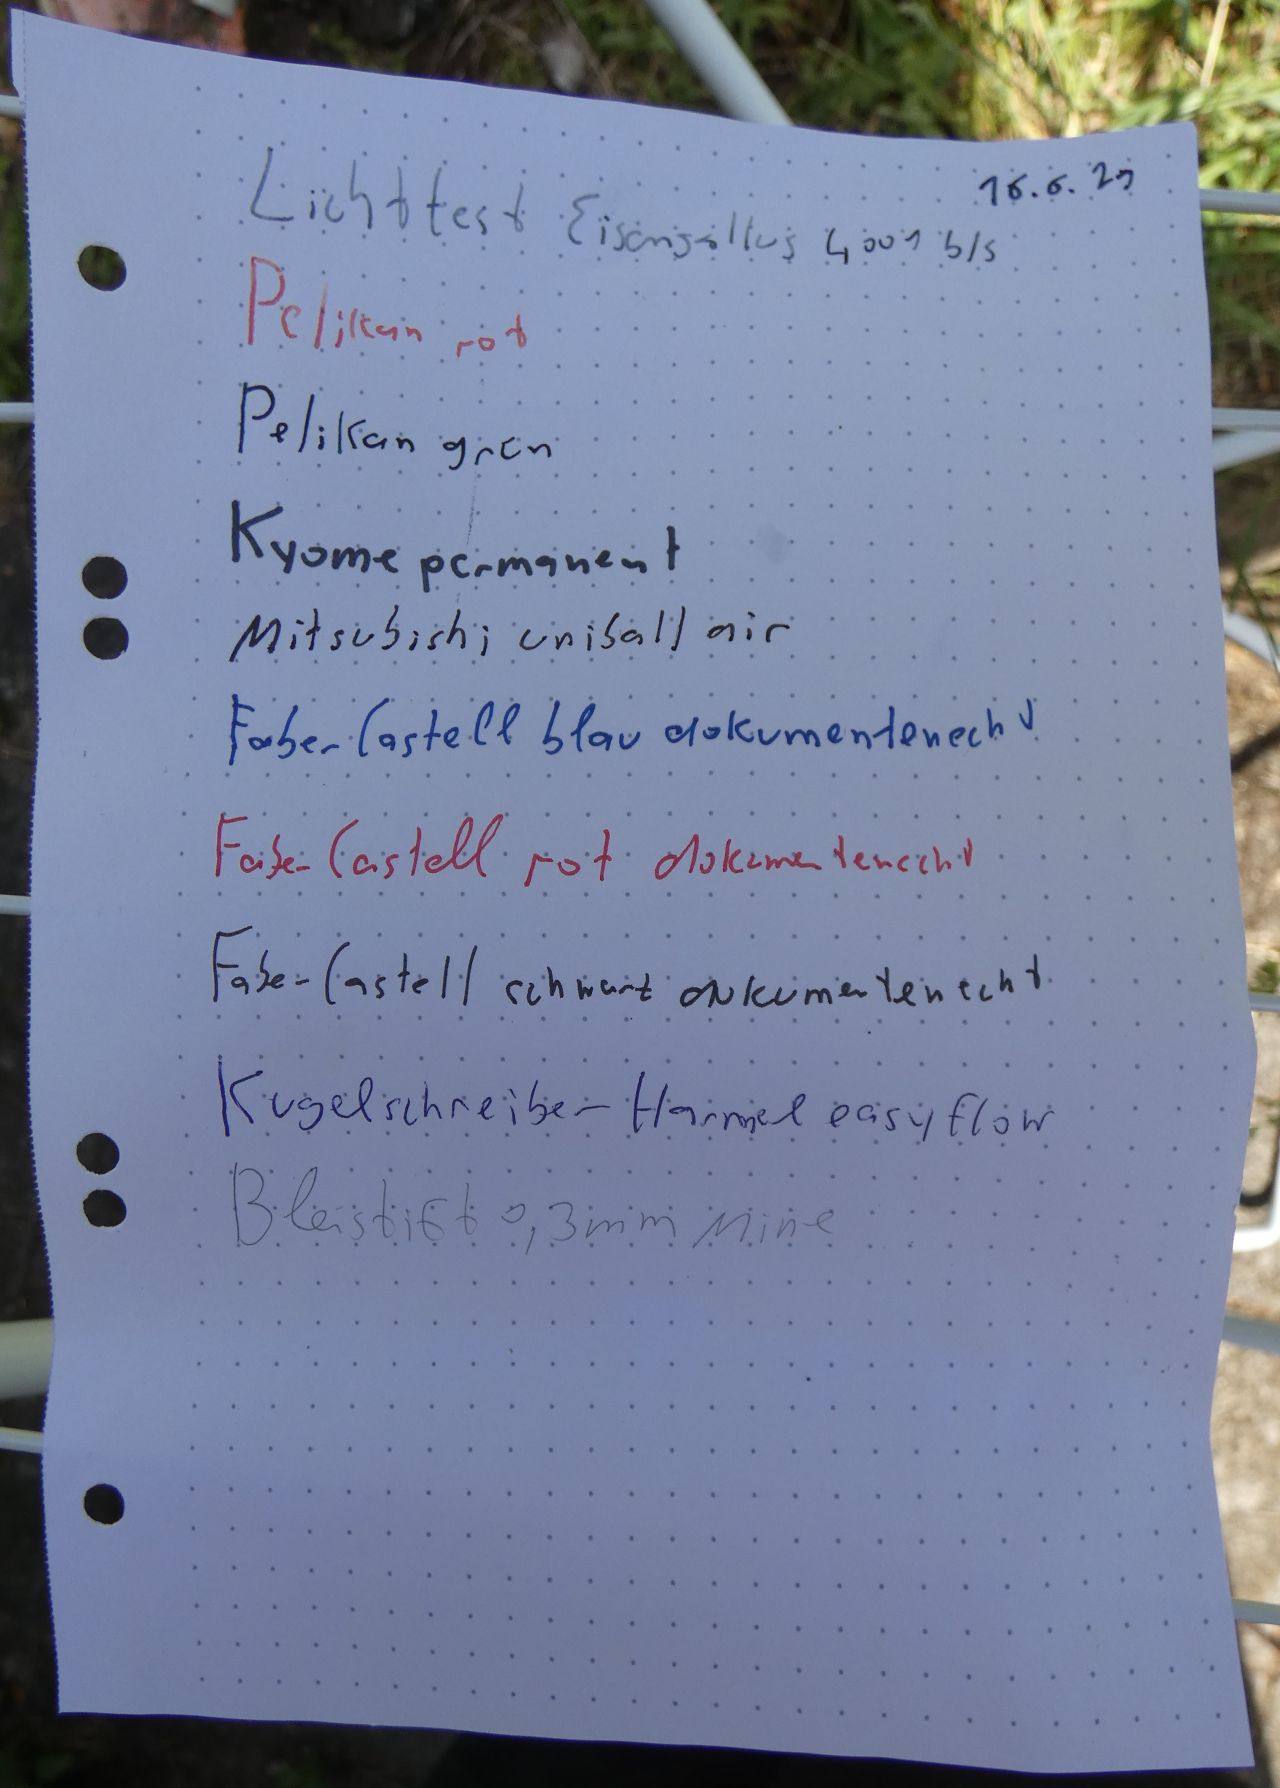 16.6.20
Lichttest Eisengallus 4001 b/s
Pelikan rot
Pelikan grün
Kyome permanent
Mitsubishi uniball air
Faber-Castell blau dokumentenecht
Faber-Castell rot dokumentenecht
Faber-Castell schwarz dokumentenecht
Kugelschreiber Harmel easyflow
Bleistift 0,3mm Mine